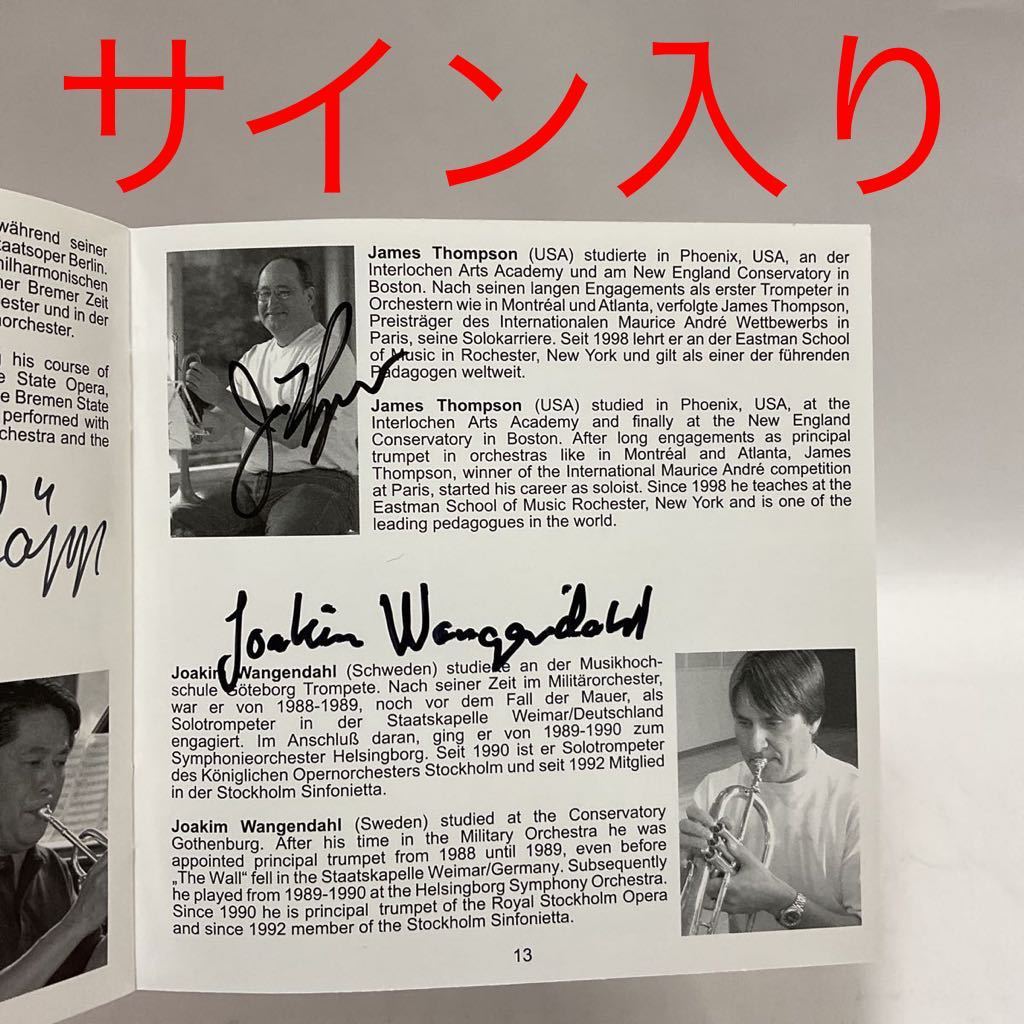 サイン入り
während seiner
taatsoper Berlin.
hilharmonischen
ner Bremer Zeit
ester und in der
orchester.
his course of
e State Opera,
e Bremen State
performed with
chestra and the
James Thompson (USA) studierte in Phoenix, USA, an der
Interlochen Arts Academy und am New England Conservatory in
Boston. Nach seinen langen Engagements als erster Trompeter in
Orchestern wie in Montréal und Atlanta, verfolgte James Thompson,
Preisträger des Internationalen Maurice André Wettbewerbs in
Paris, seine Solokarriere. Seit 1998 lehrt er an der Eastman School
of Music in Rochester, New York und gilt als einer der führenden
Pädagogen weltweit.
James Thompson (USA) studied in Phoenix, USA, at the
Interlochen Arts Academy and finally at the New England
Conservatory in Boston. After long engagements as principal
trumpet in orchestras like in Montréal and Atlanta, James
Thompson, winner of the International Maurice André competition
at Paris, started his career as soloist. Since 1998 he teaches at the
Eastman School of Music Rochester, New York and is one of the
leading pedagogues in the world.
Joakim Wangendahl
Joakim Wangendahl (Schweden) studierte an der Musikhoch-
schule Göteborg Trompete. Nach seiner Zeit im Militärorchester,
war er von 1988-1989, noch vor dem Fall der Mauer, als
Solotrompeter in der Staatskapelle Weimar/Deutschland
engagiert. Im Anschluß daran, ging er von 1989-1990 zum
Symphonieorchester Helsingborg. Seit 1990 ist er Solotrompeter
des Königlichen Opernorchesters Stockholm und seit 1992 Mitglied
in der Stockholm Sinfonietta.
Joakim Wangendahl (Sweden) studied at the Conservatory
Gothenburg. After his time in the Military Orchestra he was
appointed principal trumpet from 1988 until 1989, even before
„The Wall“ fell in the Staatskapelle Weimar/Germany. Subsequently
he played from 1989-1990 at the Helsingborg Symphony Orchestra.
Since 1990 he is principal trumpet of the Royal Stockholm Opera
and since 1992 member of the Stockholm Sinfonietta.
13